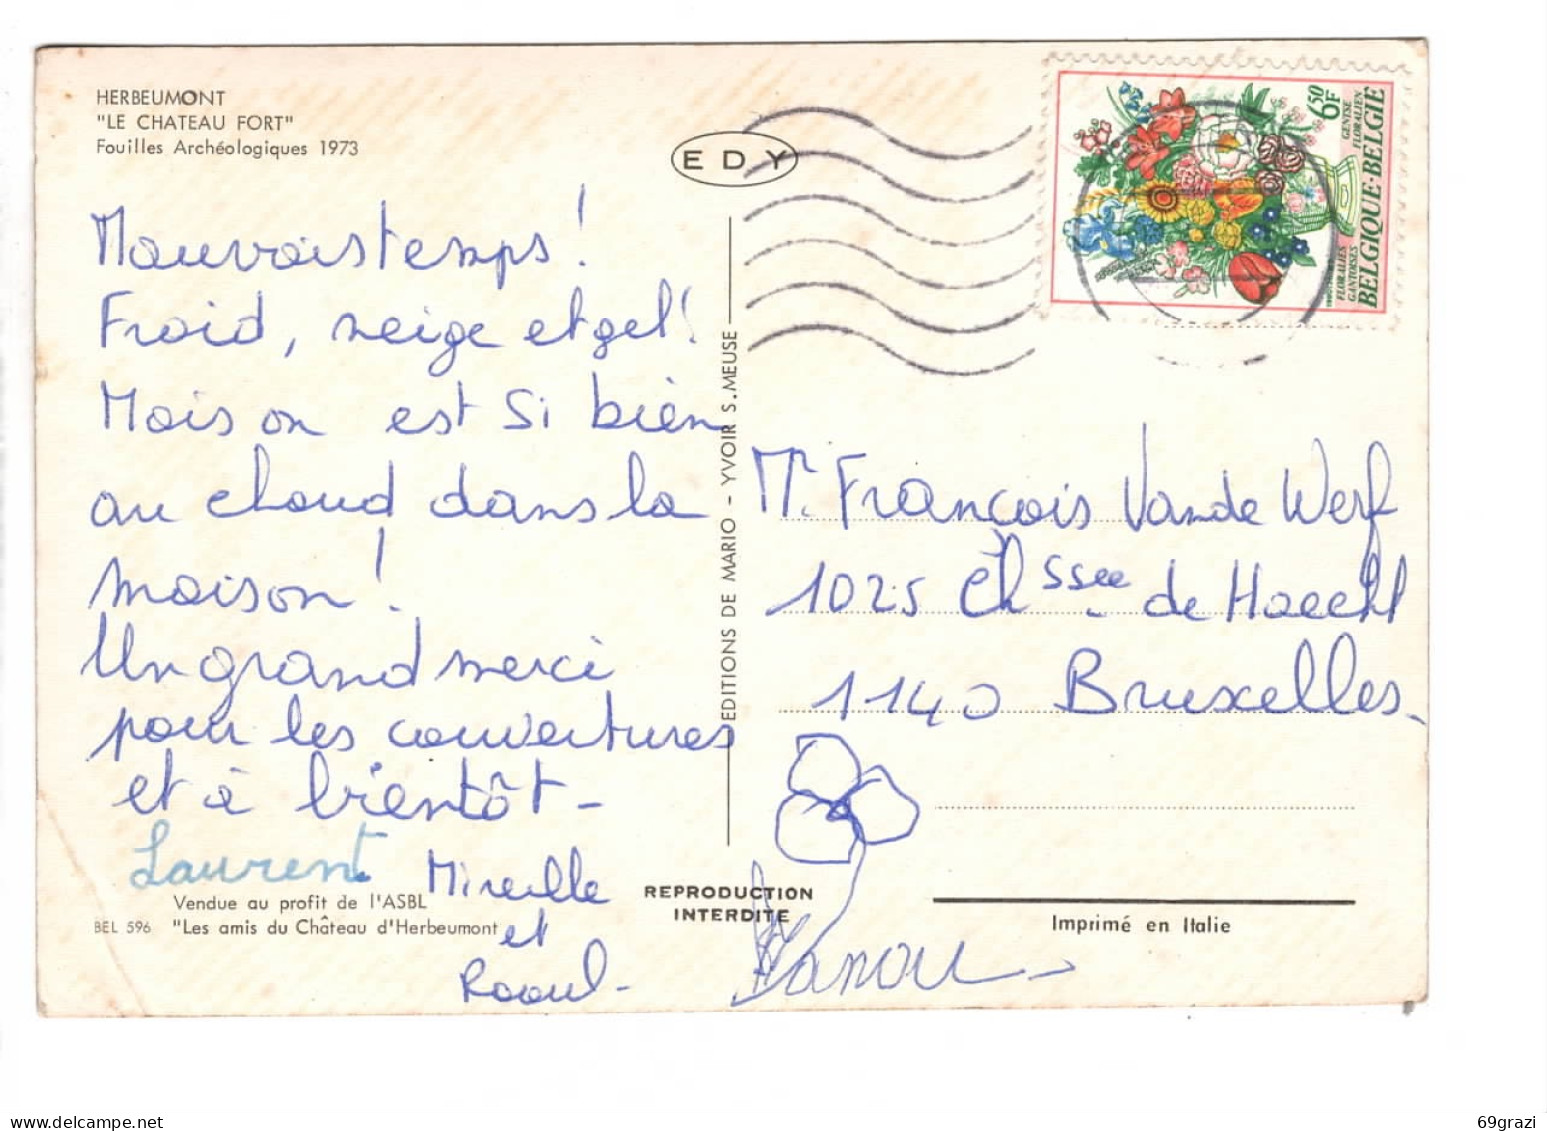 HERBEUMONT
"LE CHATEAU FORT"
Fouilles Archéologiques 1973
EDY
Mauvais temps !
Froid, neige et gel !
Mais on est si bien
au chaud dans la
maison !
Un grand merci
pour les couvertures
et à bientôt -
Laurent
Mireille
et
Raoul -
Vendue au profit de l'ASBL
BEL 596 "Les amis du Château d'Herbeumont
EDITIONS DE MARIO - YVOIR S. MEUSE
REPRODUCTION
INTERDITE
6F50
GENTSE
FLORALIEN
FLORALIES
GANTOISES
BELGIQUE·BELGIE
Mr. Francois Vande Werf
1025 Chssée de Haecht
1140 Bruxelles -
Imprimé en Italie
delcampe.net
69grazi